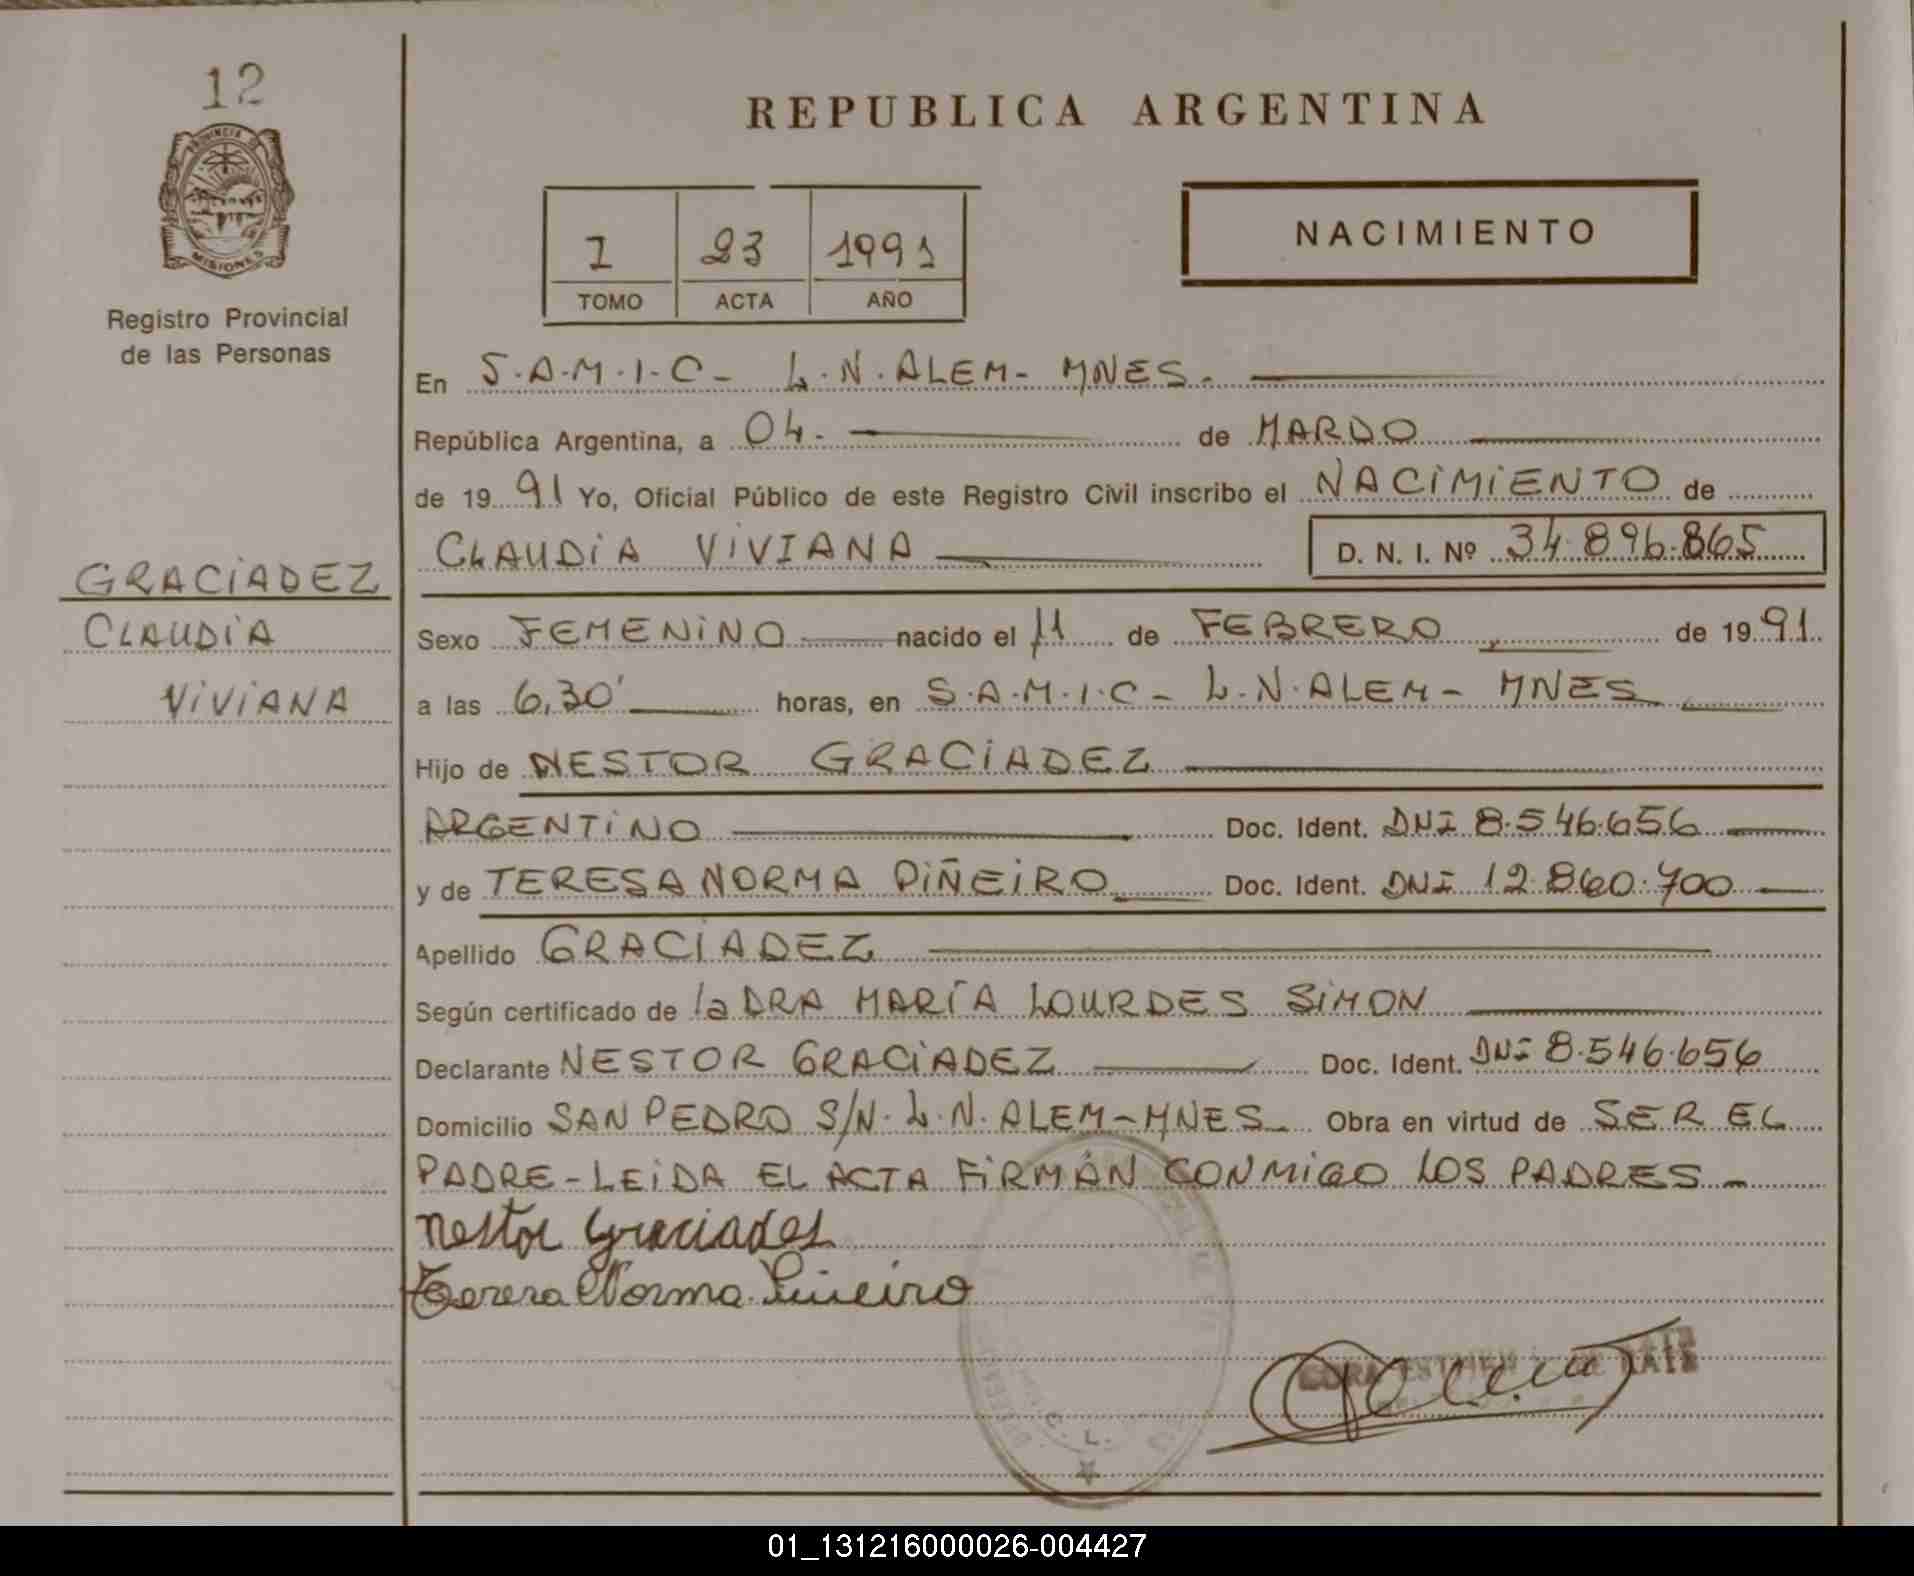 12
PROVINCIA DE
MISIONES
Registro Provincial
de las Personas
GRACIADEZ
CLAUDIA
VIVIANA
REPUBLICA ARGENTINA
I 23 1991
TOMO ACTA AÑO
NACIMIENTO
En S.A.M.I.C- L.N.ALEM- MNES.
República Argentina, a 04. de MARDO
de 1991 Yo, Oficial Público de este Registro Civil inscribo el NACIMIENTO de
CLAUDIA VIVIANA D. N. I. Nº 34.896.865
Sexo FEMENINO nacido el 11 de FEBRERO, de 1991.
a las 6,30' horas, en S.A.M.I.C- L.N.ALEM- MNES
Hijo de NESTOR GRACIADEZ
ARGENTINO Doc. Ident. DNI 8.546.656
y de TERESA NORMA PIÑEIRO Doc. Ident. DNI 12.860.700
Apellido GRACIADEZ
Según certificado de la DRA MARÍA LOURDES SIMON
Declarante NESTOR GRACIADEZ Doc. Ident. DNI 8.546.656
Domicilio SAN PEDRO S/N. L.N. ALEM-MNES Obra en virtud de SER EL
PADRE-LEIDA EL ACTA FIRMÁN CONMIGO LOS PADRES-
Nestor Graciadez
Teresa Norma Piñeiro
01_131216000026-004427